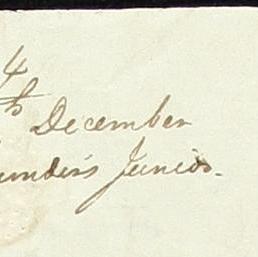 4
th December
unders Junior.